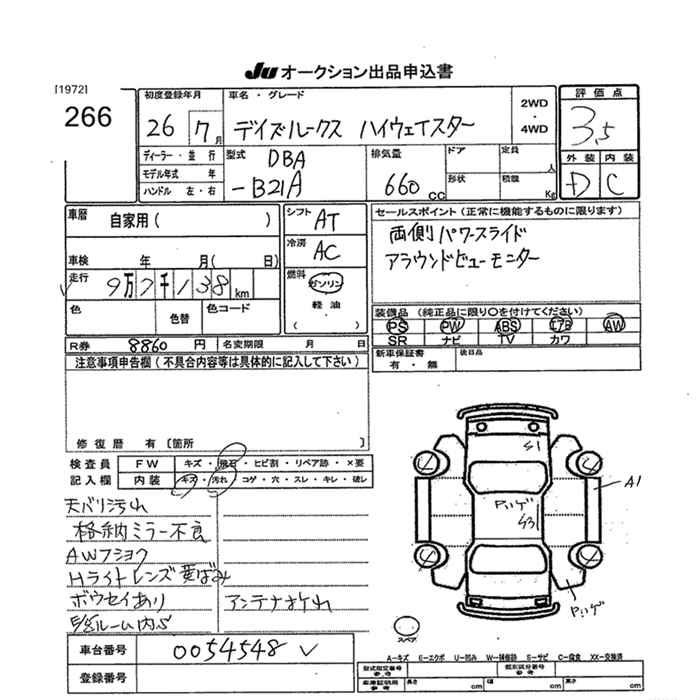 JU オークション出品申込書
[1972]
266
初度登録年月
26 7月
車名・グレード
デイズルークス ハイウェイスター
2WD・4WD
評価点
3.5
ディーラー・並行
モデル年式 年
ハンドル 左・右
型式
DBA
-B21A
排気量
660cc
ドア
形状
定員 人
積載 Kg
外装 内装
D C
車歴
自家用( )
シフト
AT
セールスポイント(正常に機能するものに限ります)
両側パワースライド
アラウンドビューモニター
車検 年 月( 日)
冷房
AC
走行
9万7千138km
燃料
ガソリン
軽油
( )
色
色替
色コード
装備品(純正品に限り○を付けてください)
PS PW ABS エアB AW
SR ナビ TV カワ
R券 8860円
名変期限 月 日
新車保証書
有・無
後日品
注意事項申告欄(不具合内容等は具体的に記入して下さい)
修復歴 有〔箇所 〕
検査員
記入欄
FW キズ・飛石・ヒビ割・リペア跡・×要
内装 キズ・汚れ・コゲ・穴・スレ・キレ・破レ
天バリ汚れ
格納ミラー不良
AWフショク
Hライトレンズ黄ばみ
ボウセイあり
アンテナオれ
S1
Pハゲ
S31
A1
Pハゲ
スペア
車台番号
0054548
登録番号
A-キズ E-エクボ U-凹み W-補修跡 S-サビ C-腐食 XX-交換済
型式指定番号
参考
類別区分番号
参考
車庫証明用
参考
長さ cm
幅 cm
高さ cm